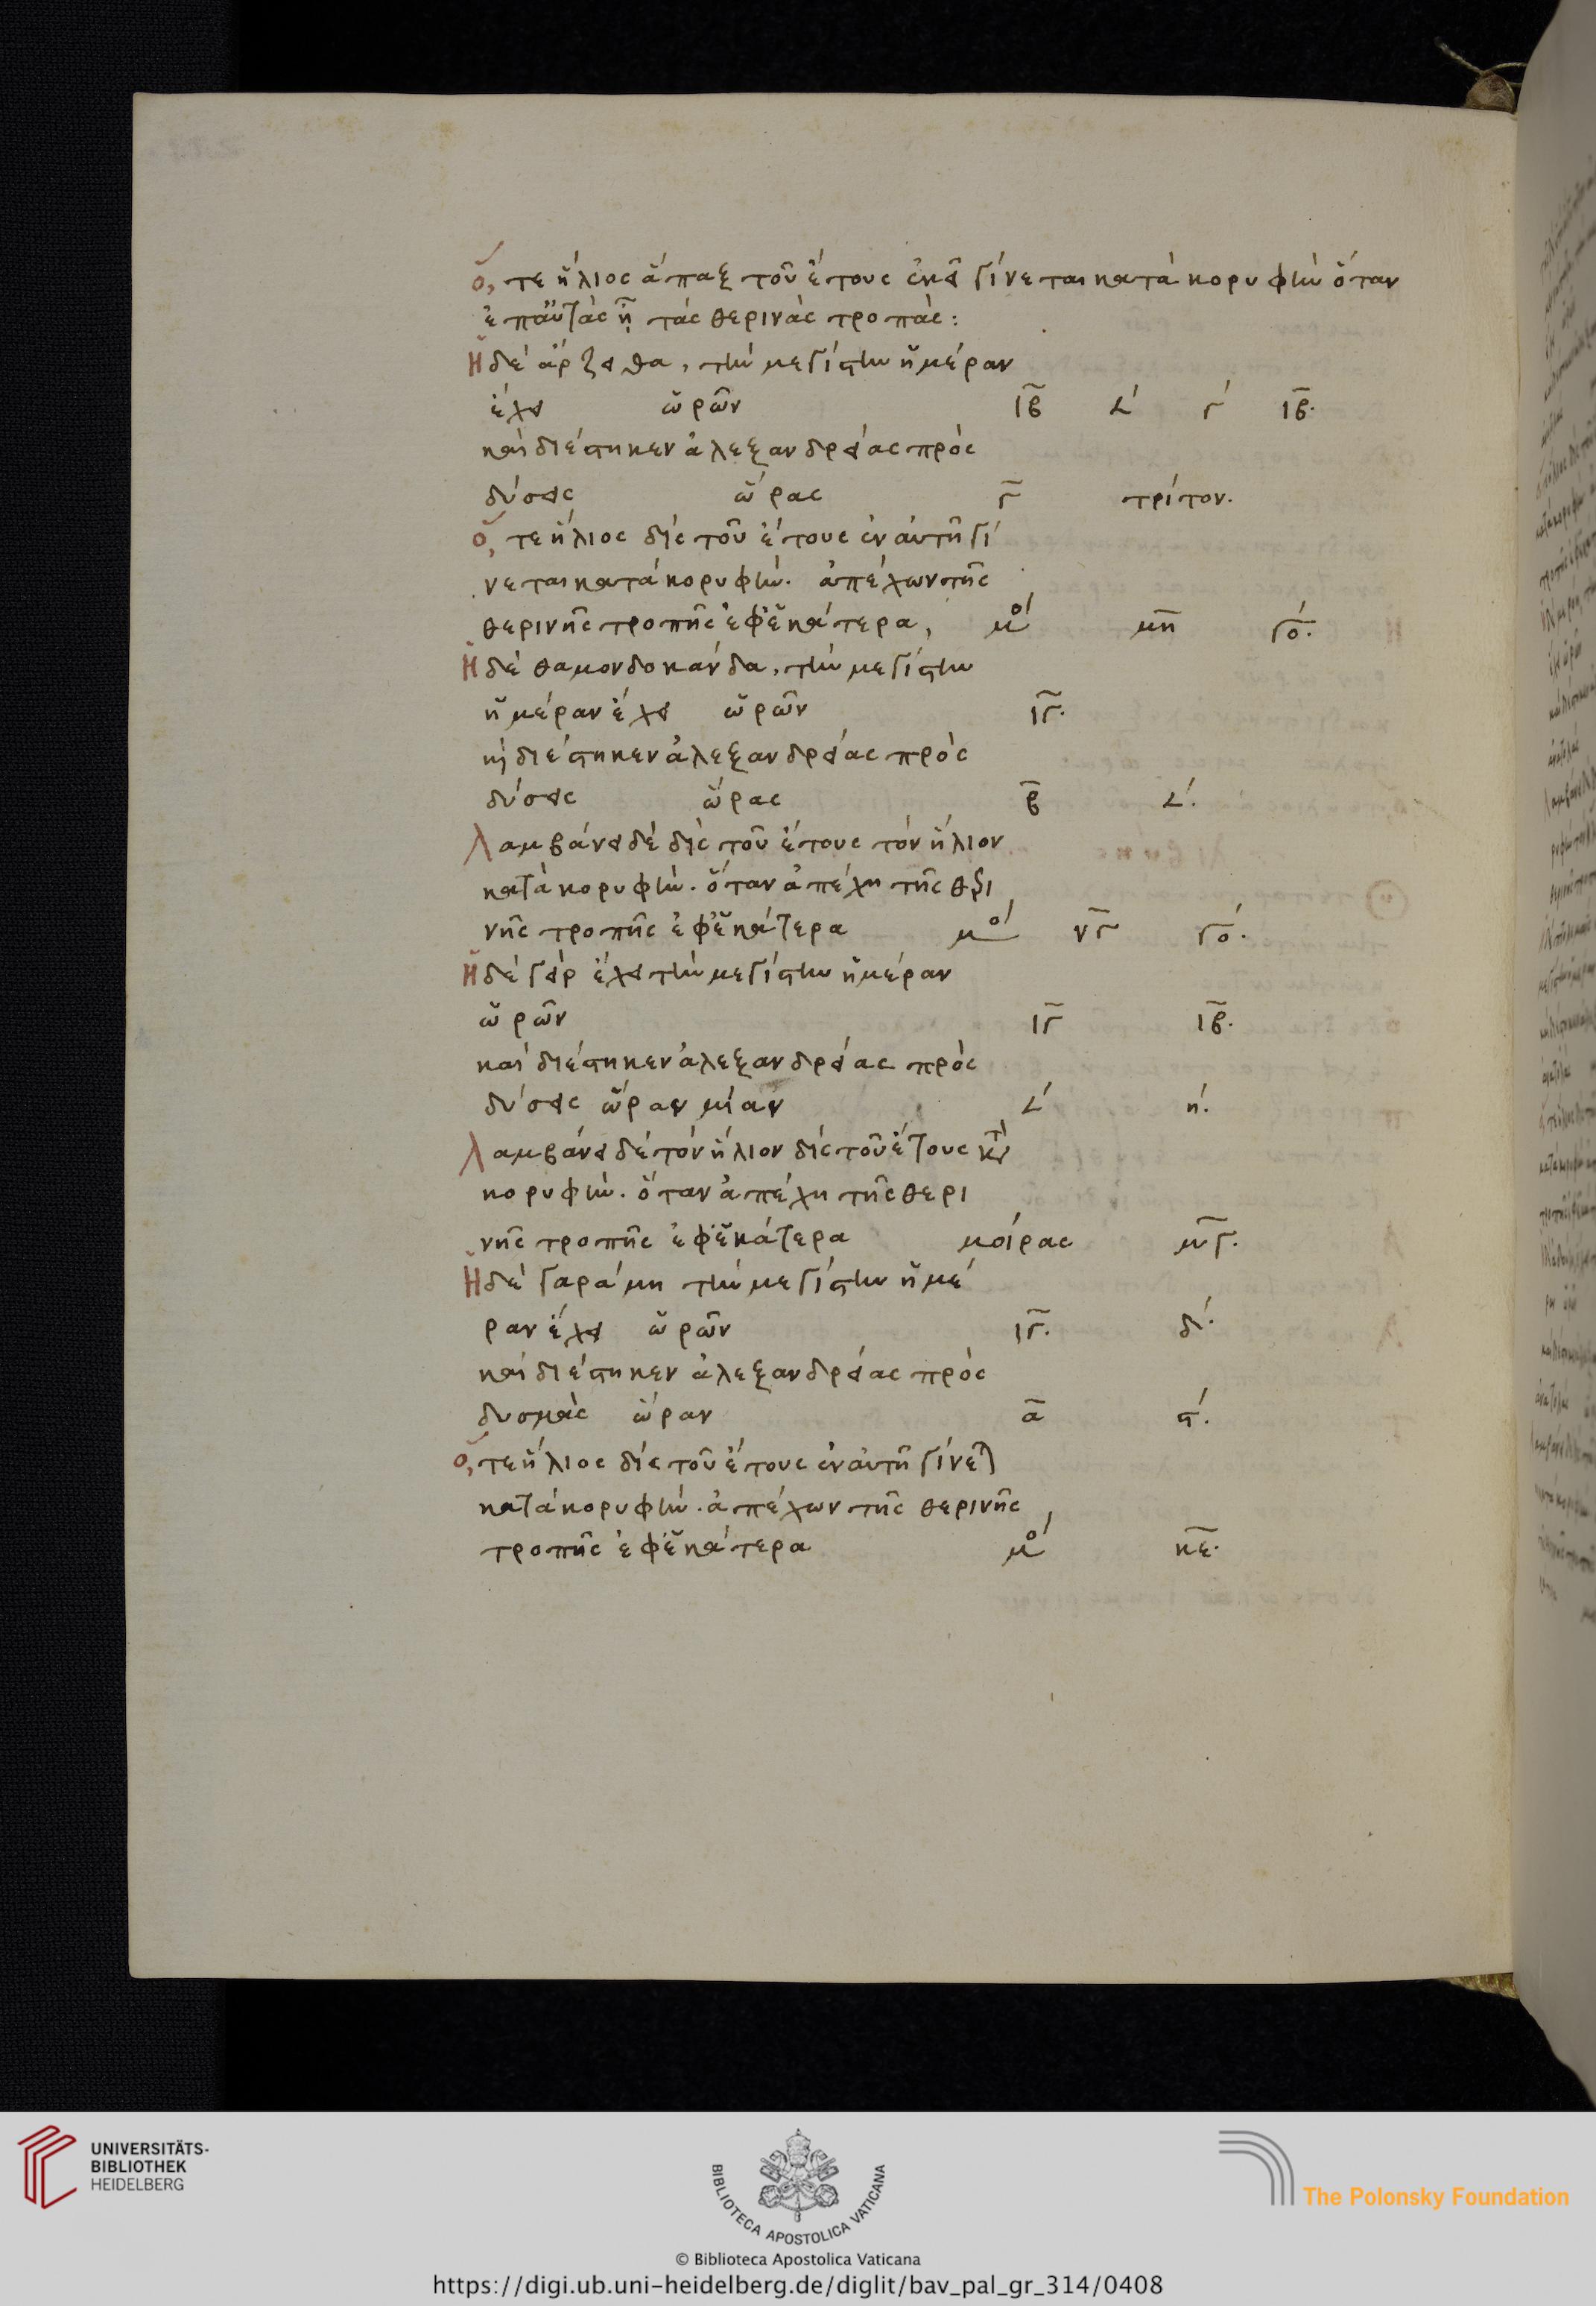 ὅ, τε ἥλιος ἅπαξ τοῦ ἔτους ἐκεῖ γίνεται κατὰ κορυφὴν ὅταν
ἐπ αὐτὰς ᾖ τὰς θερινὰς τροπάς:
Ἡ δὲ ἀρζειθα, τὴν μεγίστην ἡμέραν
ἔχει ὡρῶν ι̅β̅ 𐅵́ γ́ ι̅β̅.
καὶ διέστηκεν ἀλεξανδρείας πρὸς
δύσεις ὥρας γ̅ τρίτον.
ὅ, τε ἥλιος δὶς τοῦ ἔτους ἐν αὐτῆ γί
νεται κατὰ κορυφὴν. ἀπέχων τῆς
θερινῆς τροπῆς ἐφ ἑκάτερα, μο´ μ̅η̅ γό.
Ἡ δὲ θαμονδοκάνδα, τὴν μεγίστην
ἡμέραν ἔχει ὡρῶν ι̅γ̅.
κỳ διέστηκεν ἀλεξανδρείας πρὸς
δύσεις ὥρας β̅ 𐅵́.
Λαμβάνει δὲ δὶς τοῦ ἔτους τὸν ἥλιον
κατὰ κορυφὴν. ὅταν ἀπέχη τῆς θερι
νῆς τροπῆς ἐφ ἑκάτερα μο´ ν̅γ̅ γό.
Ἡ δὲ γείρ ἔχει τὴν μεγίστην ἡμέραν
ὡρῶν ι̅γ̅ ι̅β̅.
καὶ διέστηκεν ἀλεξανδρείας πρὸς
δύσεις ὥραν μίαν 𐅵́ ή.
Λαμβάνει δὲ τὸν ἥλιον δὶς τοῦ ἔτους κτ̀
κορυφὴν. ὅταν ἀπέχη τῆς θερι
νῆς τροπῆς ἐφ ἑκάτερα μοίρας μ̅γ̅.
Ἡ δὲ γαράμη τὴν μεγίστην ἡμέ
ραν ἔχει ὡρῶν ι̅γ̅. δ́.
καὶ διέστηκεν ἀλεξανδρείας πρὸς
δυσμὰς ὥραν α̅ ϛ́.
ὅ, τε ἥλιος δὶς τοῦ ἔτους ἐν αὐτῆ γίνετ
κατὰ κορυφὴν. ἀπέχων τῆς θερινῆς
τροπῆς ἐφ ἑκάτερα μο´ κ̅ε̅.
UNIVERSITÄTS-
BIBLIOTHEK
HEIDELBERG
BIBLIOTECA APOSTOLICA VATICANA
The Polonsky Foundation
© Biblioteca Apostolica Vaticana
https://digi.ub.uni-heidelberg.de/diglit/bav_pal_gr_314/0408